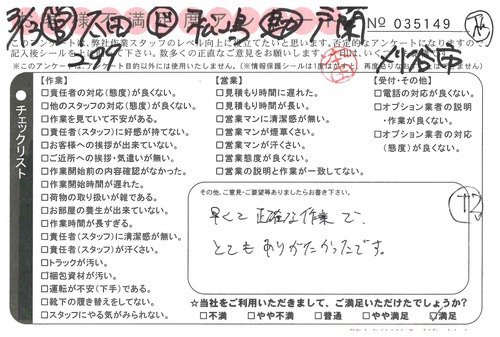 お客様満足度アンケート
№ 035149
刈谷市
このアンケートは、弊社作業スタッフのレベル向上に役立てたいと思います。否定的なアンケートになりますので、
※このアンケートは、アンケート目的以外には使用いたしません。
チェックリスト
【作業】
□責任者の対応(態度)が良くない。
□他のスタッフの対応(態度)が良くない。
□作業を見ていて不安がある。
□責任者(スタッフ)に好感が持てない。
□お客様への挨拶が出来ていない。
□ご近所への挨拶・気遣いが無い。
□作業開始前の内容確認がなかった。
□作業開始時間が遅れた。
□荷物の取り扱いが雑である。
□お部屋の養生が出来ていない。
□作業時間が長すぎる。
□責任者(スタッフ)に清潔感が無い。
□責任者(スタッフ)が汗くさい。
□トラックが汚い。
□梱包資材が汚い。
□運転が不安(下手)である。
□靴下の履き替えをしてない。
□スタッフにやる気がみられない。
【営業】
□見積もり時間に遅れた。
□見積もり時間が長い。
□営業マンに清潔感が無い。
□営業マンが煙草くさい。
□営業マンが汗くさい。
□営業態度が良くない。
□営業の説明と作業が一致してない。
【受付・その他】
□電話の対応が良くない。
□オプション業者の説明
・作業が良くない。
□オプション業者の対応
(態度)が良くない。
その他、ご意見・ご要望等ありましたらお書き下さい。
早くて正確な作業で、
とてもありがたかったです。
12
☆当社をご利用いただきまして、ご満足いただけたでしょうか?
□不満 □やや不満 □普通 □やや満足 □満足